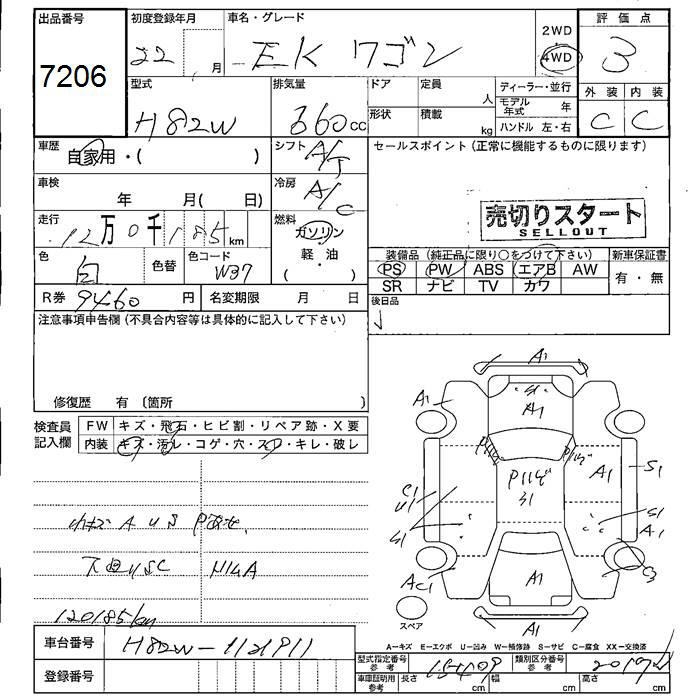 出品番号
7206
初度登録年月
22 月
車名・グレード
EK ワゴン
2WD
4WD
評価点
3
型式
H82W
排気量
660cc
ドア
定員
人
形状
積載
kg
ディーラー・並行
モデル年式 年
ハンドル 左・右
外装 内装
C C
車歴
自家用・( )
シフト
A/T
セールスポイント (正常に機能するものに限ります)
車検
年 月( 日)
冷房
A/C
売切りスタート
SELLOUT
走行
12万0千185km
燃料
ガソリン
軽・油
( )
色
白
色替
色コード
W37
装備品 (純正品に限り○をつけて下さい)
PS PW ABS エアB AW
SR ナビ TV カワ
新車保証書
有・無
R券 9460 円
名変期限 月 日
後日品
注意事項申告欄 (不具合内容等は具体的に記入して下さい)
修復歴 有 〔箇所 〕
検査員記入欄
FW キズ・飛石・ヒビ割・リペア跡・X要
内装 キズ・汚レ・コゲ・穴・スレ・キレ・破レ
小キズ A U S
下回りSC
120185km
A1
A1
S1
A1
A1
S1
C1
U1
S1
S1
S1
A1
A1
AC1
A1
スペア
A−キズ E−エクボ U−凹み W−補修跡 S−サビ C−腐食 XX−交換済
車台番号
登録番号
型式指定番号
参考
類別区分番号
参考
車庫証明用
参考
長さ cm
幅 cm
高さ cm